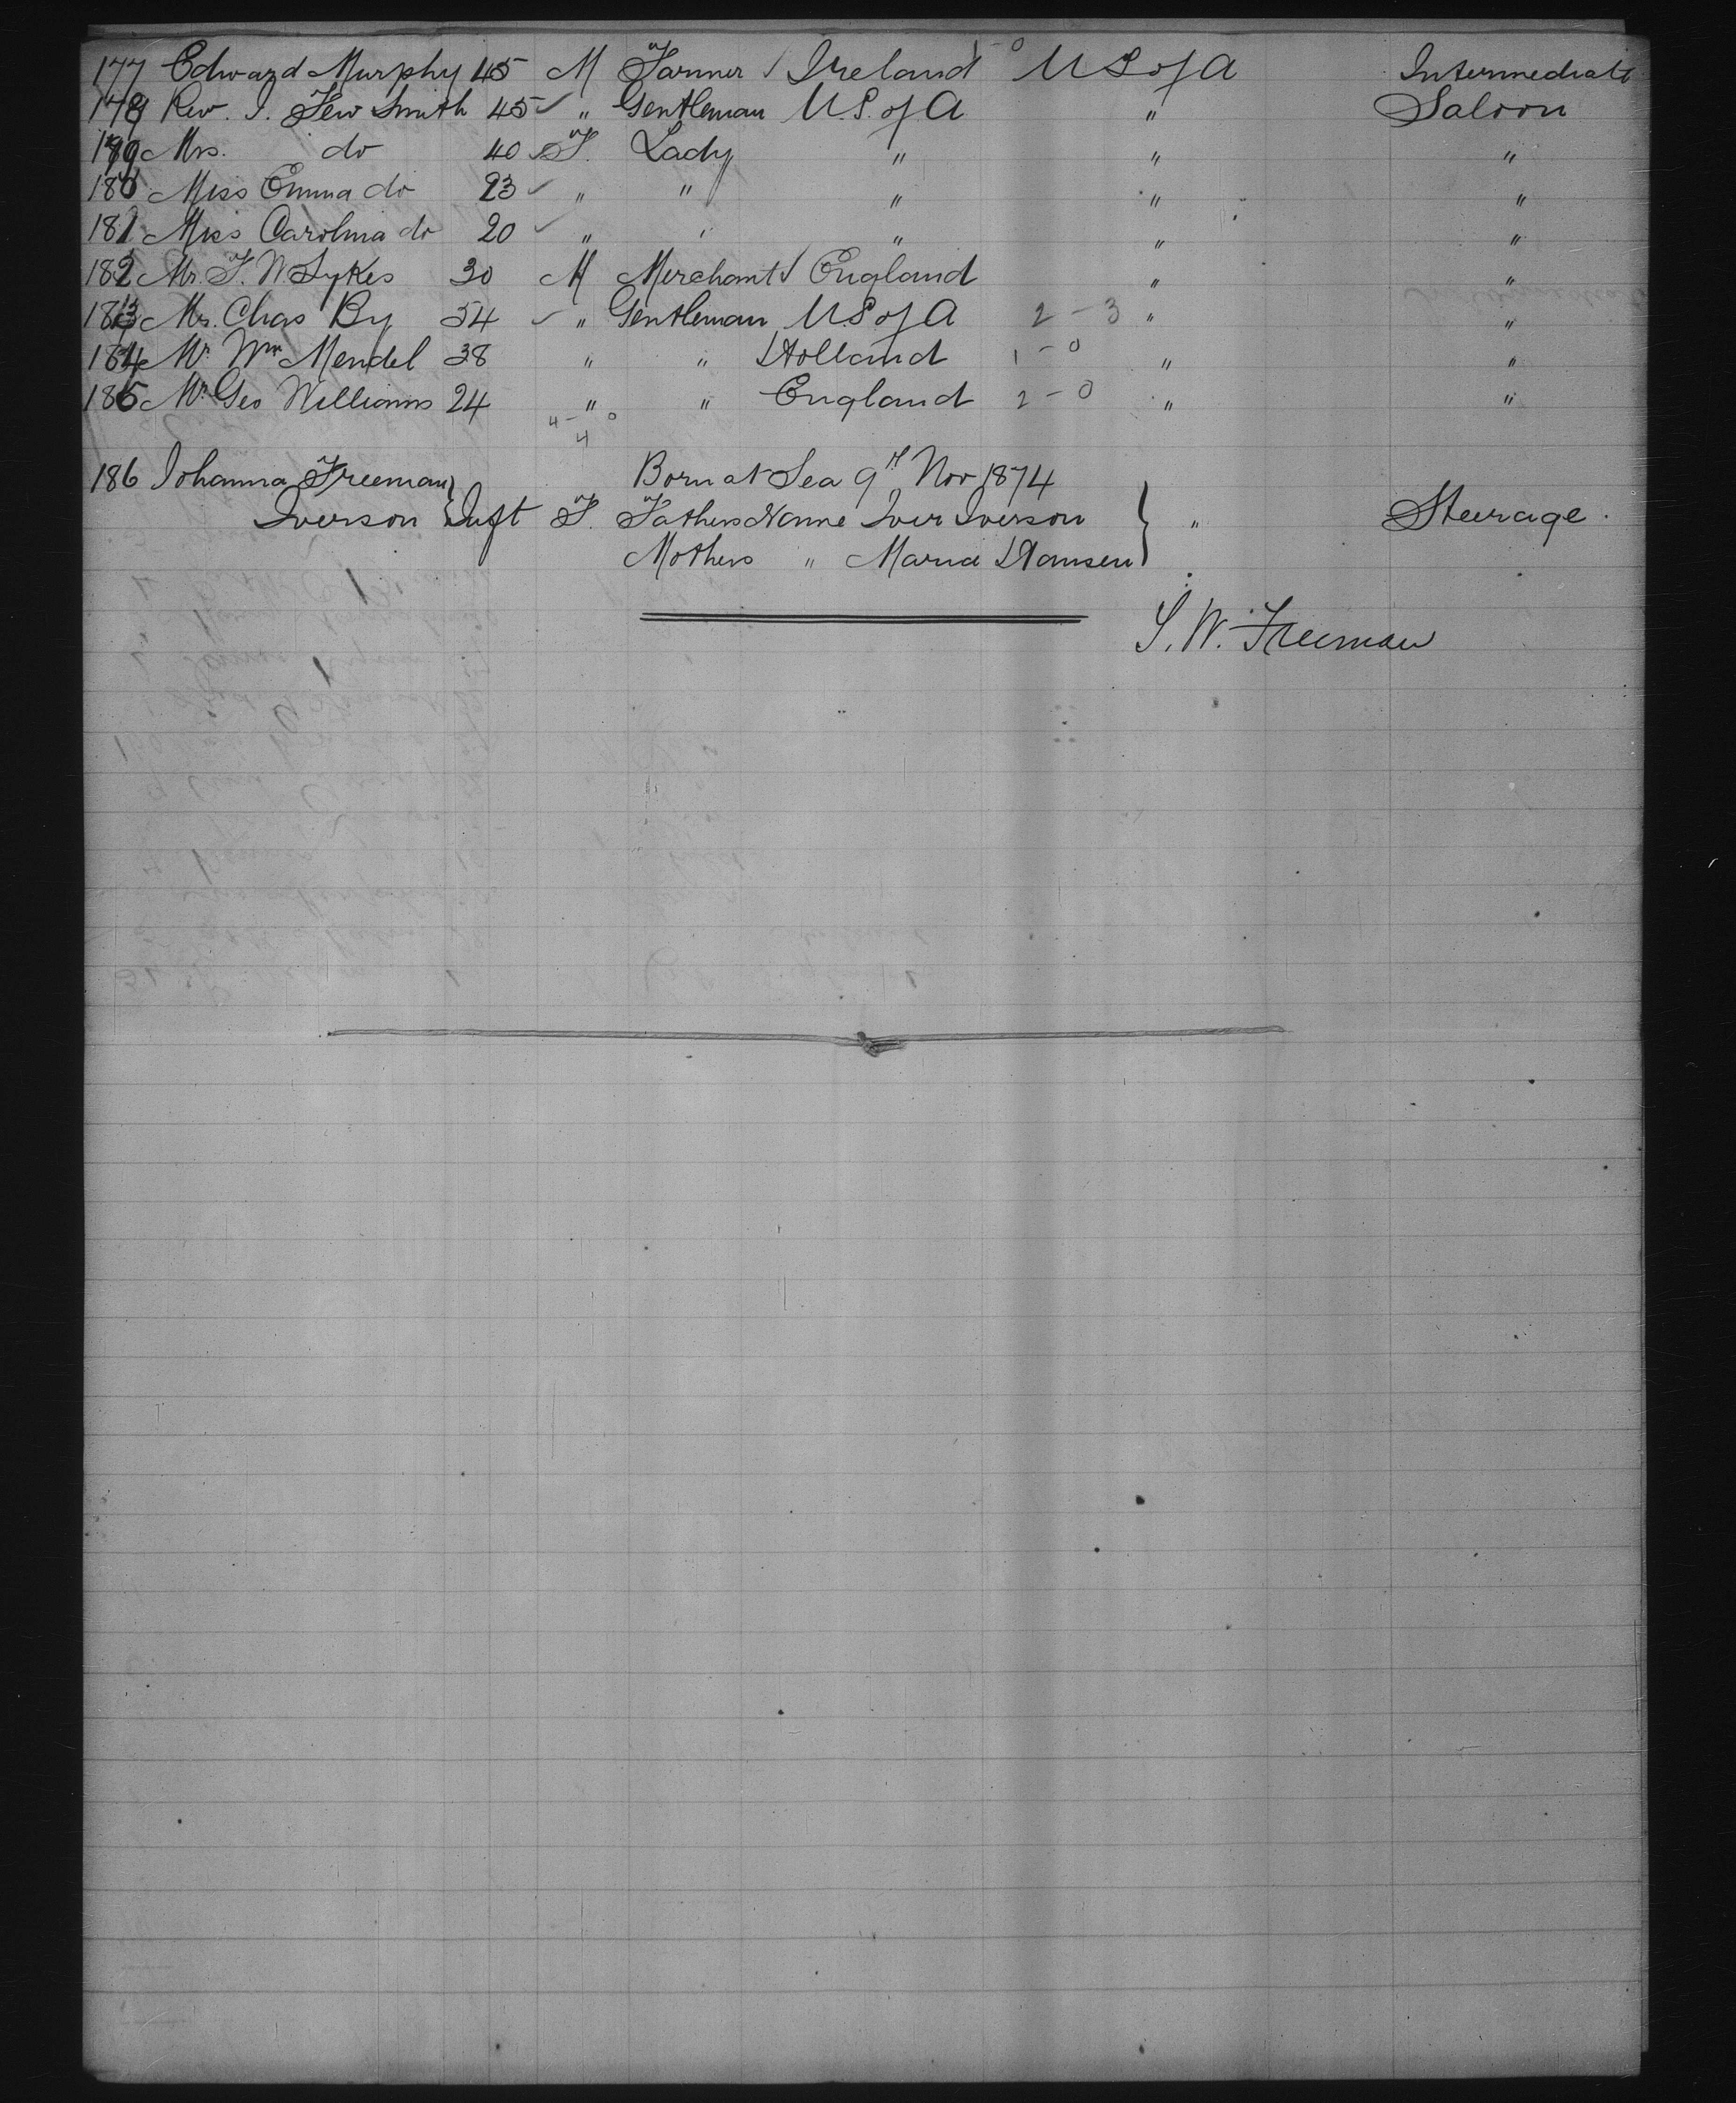 177 Edward Murphy 45 M Farmer Ireland 1-0 U S of A Intermediate
178 Rev. I. Few Smith 45 ✓ " Gentleman U.S. of A " Saloon
179 Mrs. do 40 ✓ F. Lady " " "
180 Miss Emma do 23 ✓ " " " " "
181 Miss Carolina do 20 ✓ " " " " "
182 Mr. F. W Sykes 30 M Merchant England " "
183 Mr. Chas By 54 ✓ " Gentleman U S of A 2-3 " "
184 Mr Wm Mendel 38 " " Holland 1-0 " "
185 Mr Geo Williams 24 " " England 2-0 " "
4-0
4
186 Johanna Freeman Born at Sea 9th Nov 1874
Iverson Inft F. Fathers Name Iver Iverson " Steerage.
Mothers " Maria Hansen
S. W. Freeman